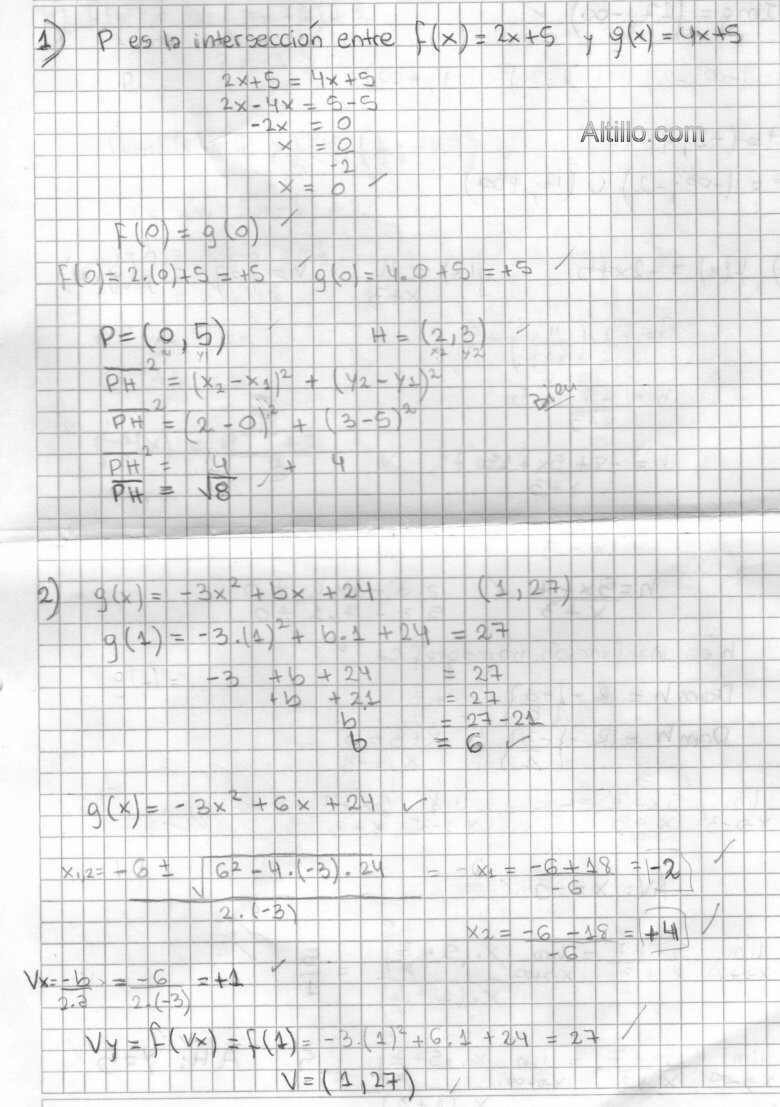 1) P es la intersección entre f(x) = 2x+5 y g(x) = 4x+5
2x+5 = 4x+5
2x-4x = 5-5
-2x = 0
Altillo.com
x = 0/-2
x = 0 ✓
f(0) = g(0) ✓
f(0) = 2.(0)+5 = +5 ✓ g(0) = 4.0+5 = +5 ✓
P = (0, 5) H = (2, 3) ✓
x1 y1 x2 y2
PH² = (x2-x1)² + (y2-y1)²
PH² = (2-0)² + (3-5)²
Bien
PH² = 4 + 4
PH = √8 ✓
2) g(x) = -3x² + bx + 24 (1, 27)
g(1) = -3.(1)² + b.1 + 24 = 27
-3 + b + 24 = 27
+b + 21 = 27
b = 27-21
b = 6 ✓
g(x) = -3x² + 6x + 24 ✓
x1,2 = -6 ± √6² - 4.(-3).24 / 2.(-3) = x1 = -6+18/-6 = -2 ✓
x2 = -6-18/-6 = +4 ✓
Vx = -b/2.a = -6/2.(-3) = +1 ✓
Vy = f(Vx) = f(1) = -3.(1)² + 6.1 + 24 = 27 ✓
V = (1, 27) ✓